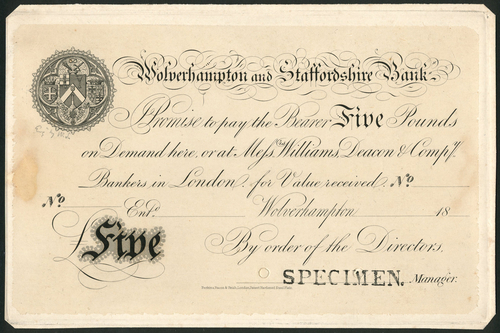 Wolverhampton and Staffordshire Bank
I Promise to pay the Bearer Five Pounds
on Demand here, or at Mess.rs Williams, Deacon & Comp.y
Bankers in London, for Value received, No
No
Ent.d Wolverhampton 18
£ Five By order of the Directors.
SPECIMEN. Manager.